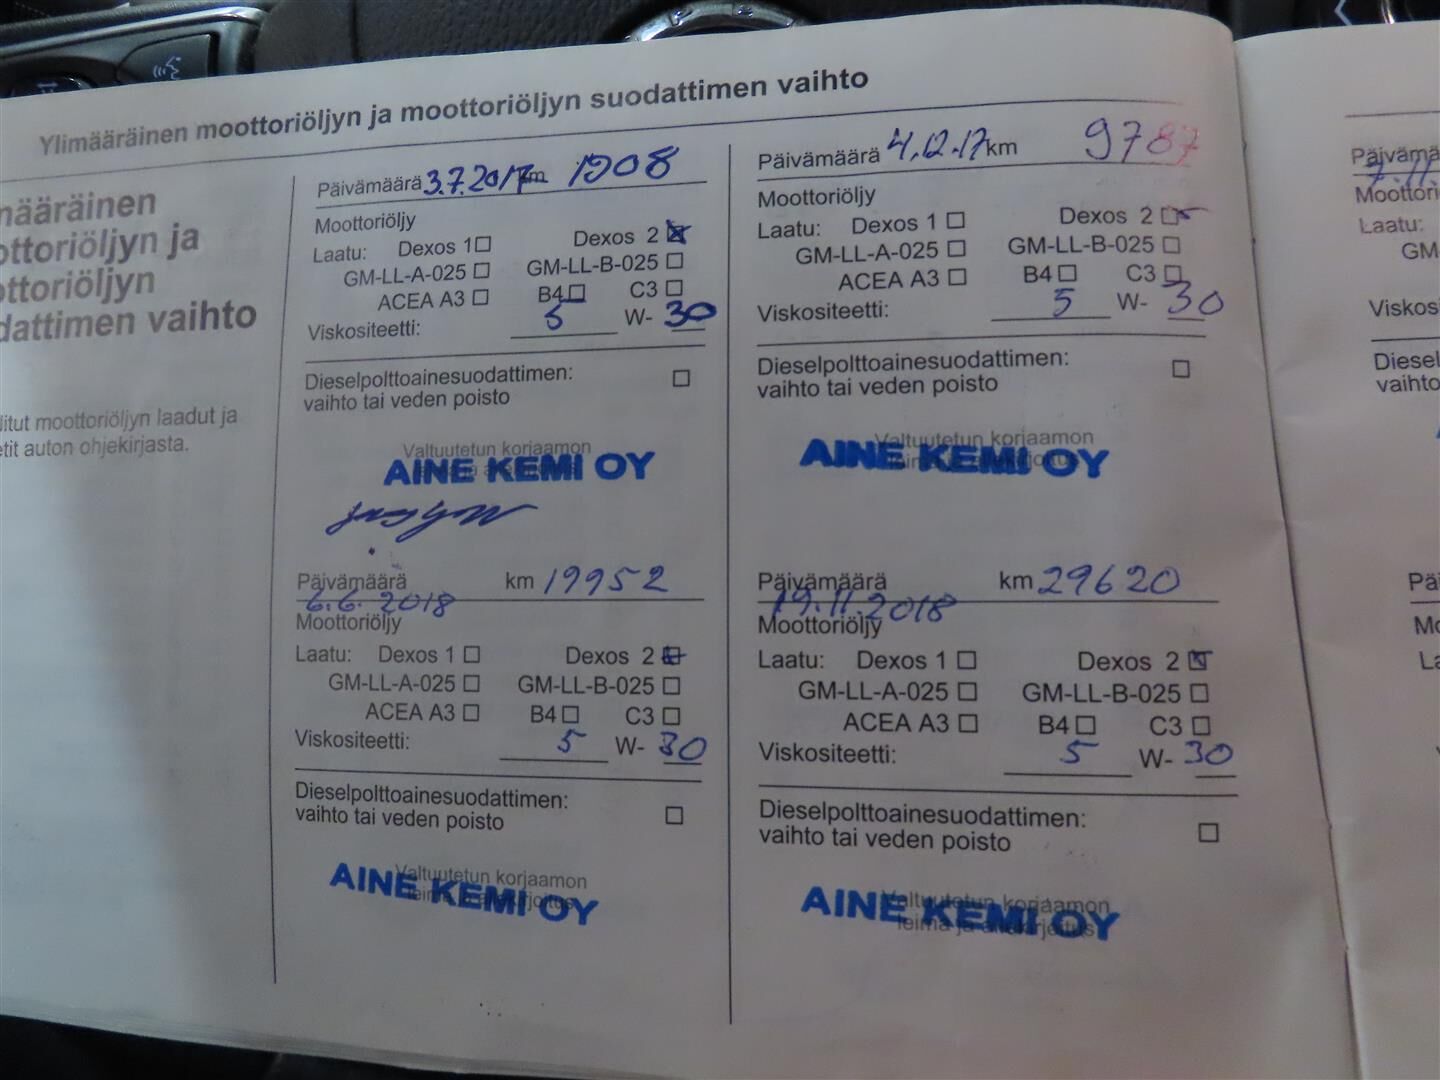 Ylimääräinen moottoriöljyn ja moottoriöljyn suodattimen vaihto
määräinen
ottoriöljyn ja
ottoriöljyn
dattimen vaihto
litut moottoriöljyn laadut ja
etit auton ohjekirjasta.
Päivämäärä 3.7.2017 km 1908
Moottoriöljy
Laatu: Dexos 1 ☐ Dexos 2 ☒
GM-LL-A-025 ☐ GM-LL-B-025 ☐
ACEA A3 ☐ B4 ☐ C3 ☐
Viskositeetti: 5 W- 30
Dieselpolttoainesuodattimen:
vaihto tai veden poisto ☐
Valtuutetun korjaamon
AINE KEMI OY
Päivämäärä 4.12.17 km 9787
Moottoriöljy
Laatu: Dexos 1 ☐ Dexos 2 ☒
GM-LL-A-025 ☐ GM-LL-B-025 ☐
ACEA A3 ☐ B4 ☐ C3 ☐
Viskositeetti: 5 W- 30
Dieselpolttoainesuodattimen:
vaihto tai veden poisto ☐
Valtuutetun korjaamon
AINE KEMI OY
Päivämäärä km 19952
6.6.2018
Moottoriöljy
Laatu: Dexos 1 ☐ Dexos 2 ☒
GM-LL-A-025 ☐ GM-LL-B-025 ☐
ACEA A3 ☐ B4 ☐ C3 ☐
Viskositeetti: 5 W- 30
Dieselpolttoainesuodattimen:
vaihto tai veden poisto ☐
Valtuutetun korjaamon
leima ja allekirjoitus
AINE KEMI OY
Päivämäärä km 29620
19.11.2018
Moottoriöljy
Laatu: Dexos 1 ☐ Dexos 2 ☒
GM-LL-A-025 ☐ GM-LL-B-025 ☐
ACEA A3 ☐ B4 ☐ C3 ☐
Viskositeetti: 5 W- 30
Dieselpolttoainesuodattimen:
vaihto tai veden poisto ☐
Valtuutetun korjaamon
leima ja allekirjoitus
AINE KEMI OY
Päivämä
7.11
Moottori
Laatu:
GM-
Viskos
Diesel
vaihto
Pä
Mo
La